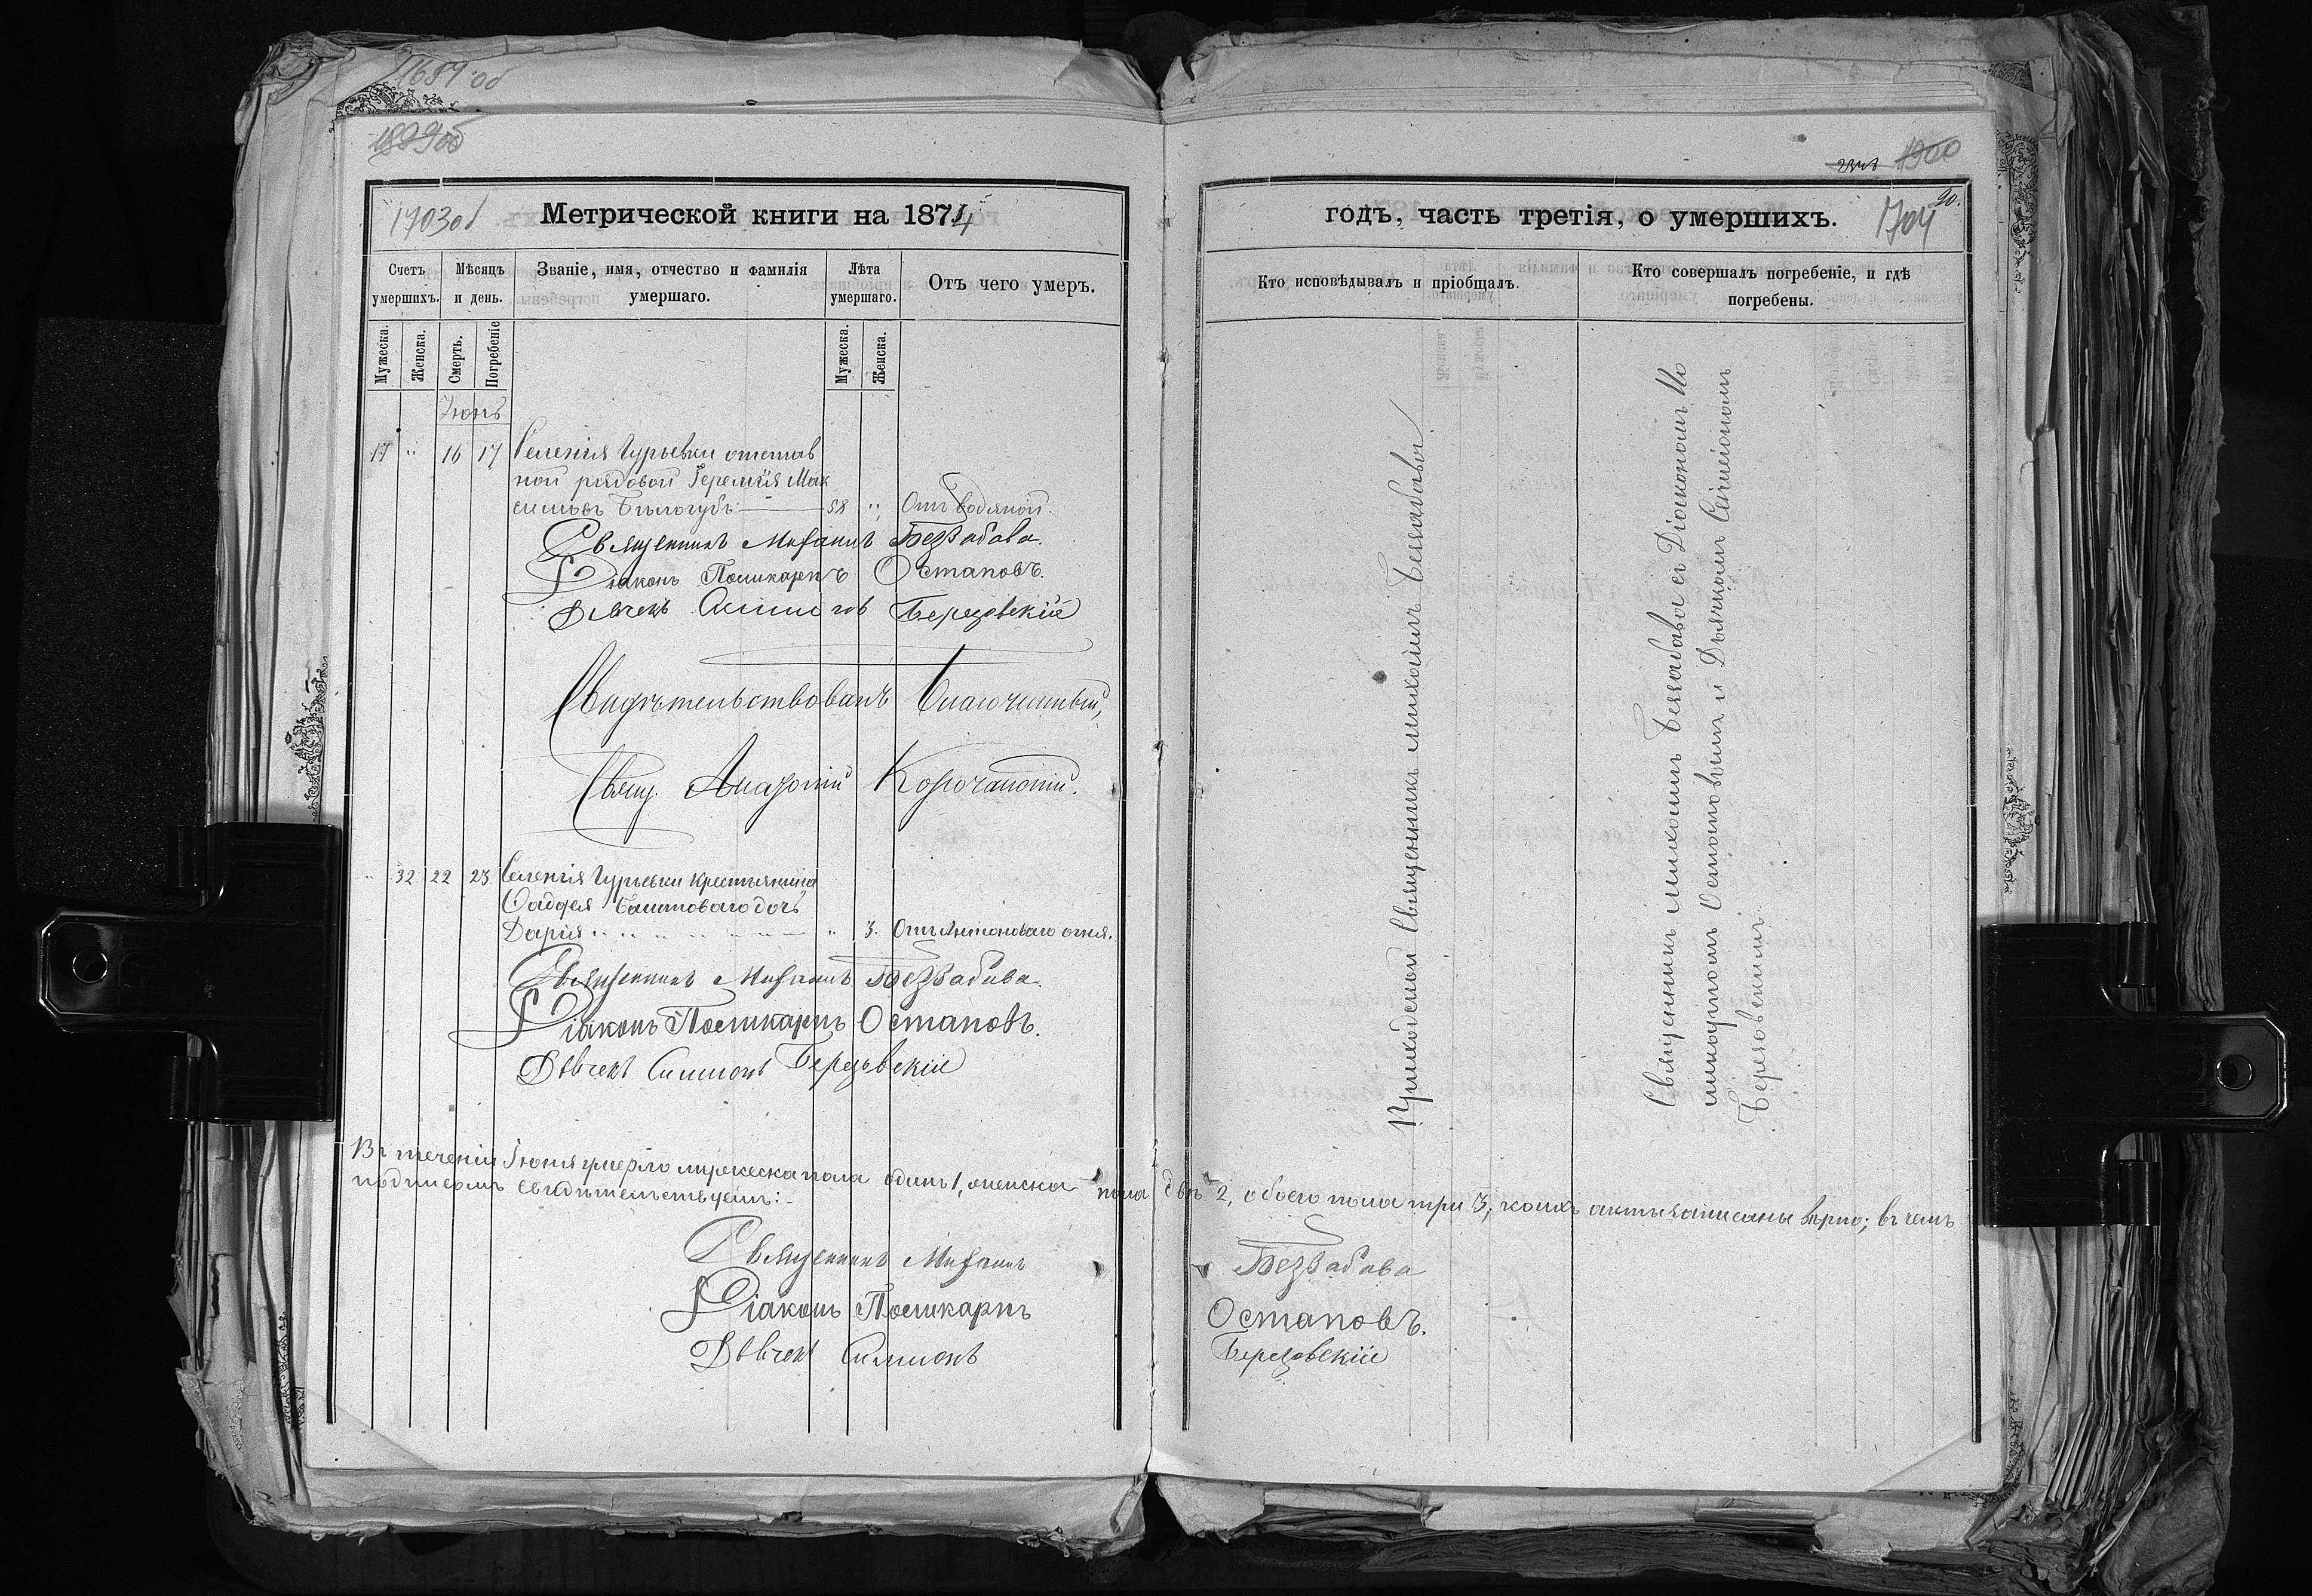 1687 об
1899 об
1703 об
Метрической книги на 1874
Счетъ умершихъ.
Мѣсяцъ и день.
Званіе, имя, отчество и фамилія умершаго.
Лѣта умершаго.
Отъ чего умеръ.
Мужеска.
Женска.
Смерть.
Погребеніе
Мужеска.
Женска.
Іюнь
17 " 16 17 Селенія Гурьевки отстав
ной рядовой Іеремія Мак
симовъ Бѣлогубъ 58 " Отъ водяной.
Священникъ Михаилъ Беззабава.
Діаконъ Поликарпъ Остаповъ.
Дьячекъ Березовскій
Свидѣтельствовалъ Благочинный,
Свящ. Корочанскій.
" 32 22 23 Селенія Гурьевки крестьянина
Фаддея Баштоваго дочь
Дарія " 3. Отъ Антоноваго огня.
Священникъ Михаилъ Беззабава.
Діаконъ Поликарпъ Остаповъ.
Дьячекъ Симеонъ Березовскій
Въ теченіи Іюня умерло мужеска пола одинъ 1, женска пола двѣ 2, обоего пола три 3; коихъ акты записаны вѣрно; въ чемъ
подписомъ свидѣтельствуемъ:
Священникъ Михаилъ Беззабава
Діаконъ Поликарпъ Остаповъ.
Дьячекъ Симеонъ Березовскій
1900
20.
1704
годъ, часть третія, о умершихъ.
Кто исповѣдывалъ и пріобщалъ.
Кто совершалъ погребеніе, и гдѣ погребены.
Приходской Священникъ Михаилъ Беззабава
Священникъ Михаилъ Беззабава съ Діакономъ По
ликарпомъ Остаповымъ и Дьячкомъ Симеономъ
Березовскимъ.